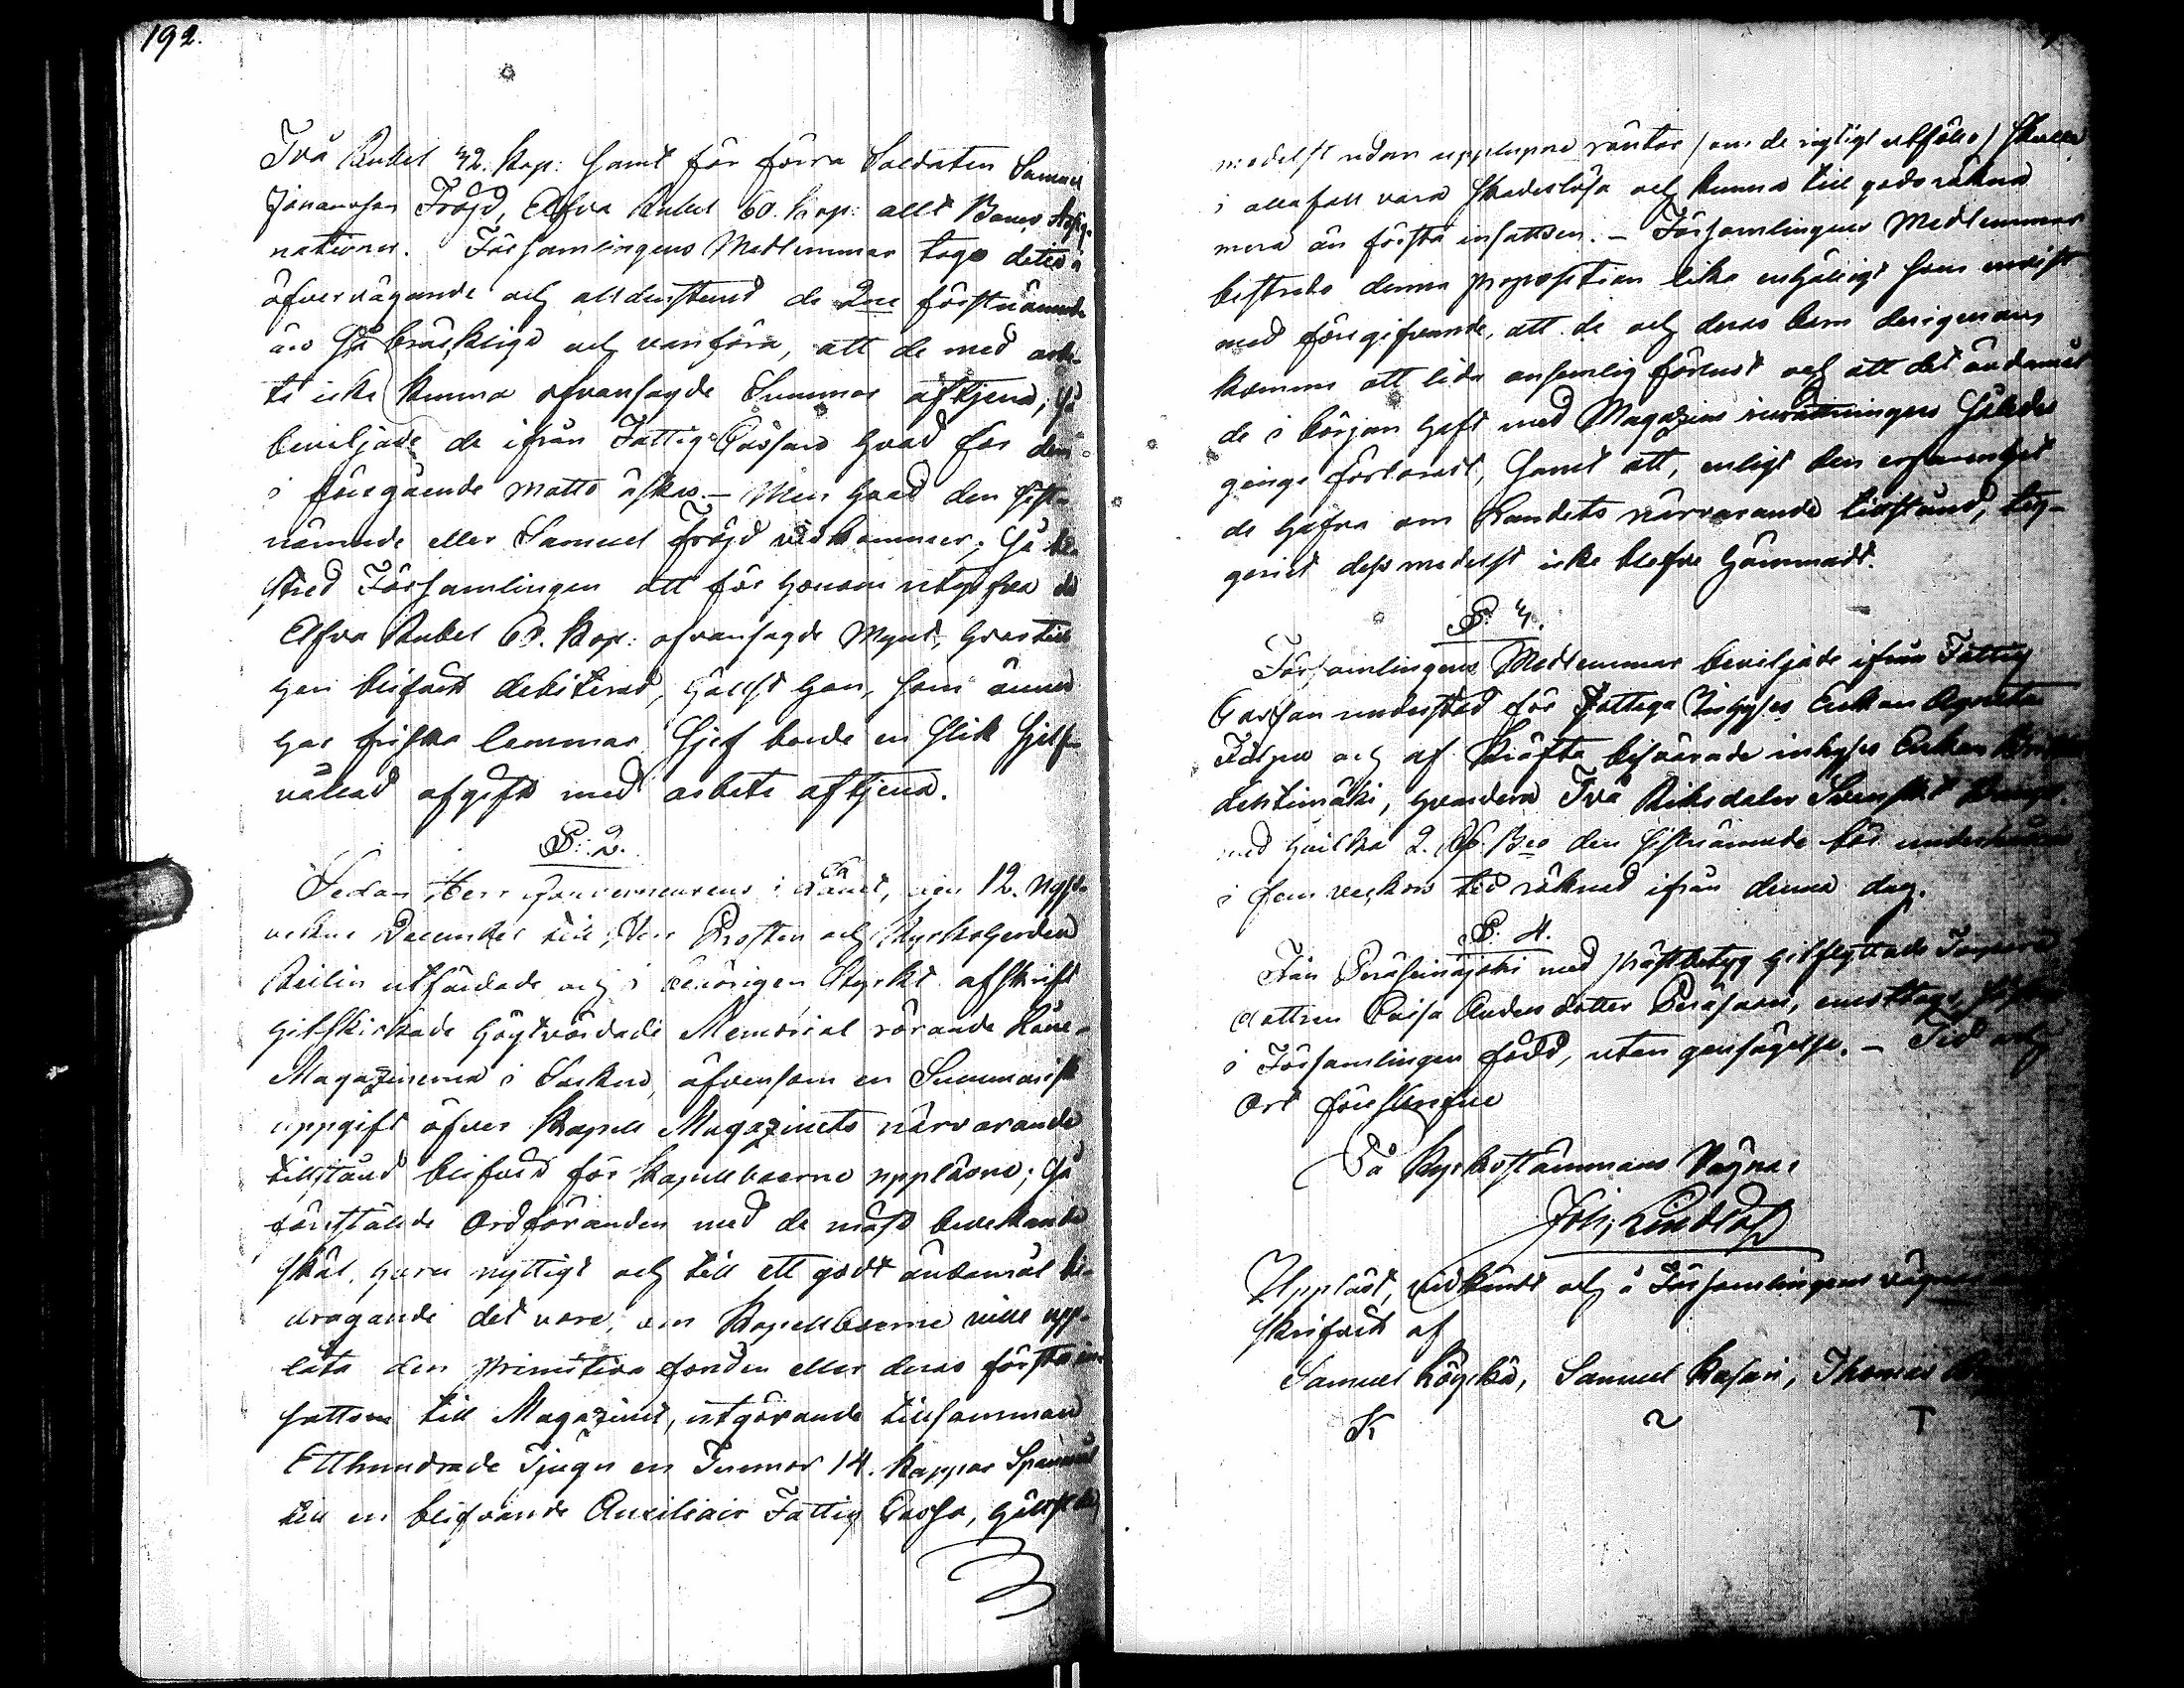 192.
Två Rubel 42. Kop: samt för förra Soldaten Samuel
Johansson Fröjd, Elfva Rubel 60. Kop: allt Banco Assig-
nationer. Församlingens Medlemmar togo detta i
öfvervägande och alldenstund de 2ne förstnämnde
äro så bräcklige och vanföra, att de med arbe-
te icke kunna ofvansagde Summor aftjena, så
beviljade de ifrån Fattig Cassan hvad för dem
i föregående matto äskas. – Men hvad den sist-
nämnde eller Samuel Fröjd vidkommer; så be-
stred Församlingen att för honom utgifva de
Elfva Rubel 60. Kop: ofvansagde Mynt, hvartill
han blifvit debiterad, hälst han, som ännu
har friska lemmar sjelf borde en slik sjelf-
vållad afgift med arbete aftjena.
P: 2.
Sedan Herr Gouverneurens i Länet, den 12. nyss-
vekne December till Herr Prosten och Kyrkoherden
Reilin utfärdade och i behörigen styrkt afskrift
hitskickade högtvördade Memorial rörande Låne-
Magazinerna i Socknen, äfvensom en Summarisk
uppgift öfver Kapell Magazinets närvarande
tillstånd blifvit för Kapellboerne uppläsne; så
föreställde Ordföranden med de mäst bevekande
skäl, huru nyttigt och till ett godt ändamål bi-
dragande det vore, om Kapellboerne ville upp-
låta den primitiva fonden eller deras första in-
sattsen till Magazinet, utgörande tillsamman
Etthundrade Tjugu en Tunnor 14. Kappar Spanmål
till en blifvande Auxiliair Fattig Cassa, hälst de,
medelst redan upplupne räntor /om de rigtigt utfölle/ skulle
i allafall vara skadeslösa och kunna till godo räkna
mera än första insattsen. – Församlingens Medlemmar
bestredo denna proposition lika enhälligt som envist
med föregifvande, att de och deras barn derigenom
komme att lida ansenlig förlust och att det ändamål
de i början haft med Magazins inrättningen således
ginge förloradt, samt att, enligt den erfarenhet
de hafva om Landets närvarande tillstånd, tig-
geriet dessmedelst icke blefve hämmadt.
Församlingens Medlemmar beviljade ifrån Fattig
Cassan understöd för fattiga Inhyses Enkan Agneta
och af Kräfta besvärade inhyses Enkan
Lehtimäki, hvardera Två Riksdaler Svenskt
med hvilka 2. Rd. Bco den sistnämnde bör underhållas
i fem veckors tid räknad ifrån denna dag.
P: 4.
Från Peräseinäjoki med prästbetyg hitflyttade
dottren Caisa Andersdotter Peräsaari, emottogs,
i Församlingen född, utan gensägelse. – Tid och
Ort förrskrifne
På Kyrkostämmans Vägnar
Joh: Lindlöf
Uppläst, vidkändt och å Församlingens vägnar
skrifvit af
Samuel Kasari, Thomas